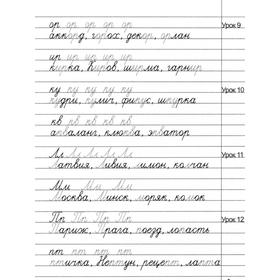 ор ор ор ор ор Урок 9
аккорд, горох, декор, орлан
ир ир ир ир ир
кирка, Киров, ширма, гарнир
ку ку ку ку ку Урок 10
кудри, кулич, фикус, шкурка
кв кв кв кв кв
акваланг, клюква, экватор
Лл Лл Лл Лл Урок 11
Латвия, Ливия, лимон, колчан
Мм Мм Мм
Москва, Минск, моряк, комок
Пп Пп Пп Пп Урок 12
Париж, Прага, поезд, лопасть
пт пт пт пт пт
птичка, Нептун, рецепт, лапта